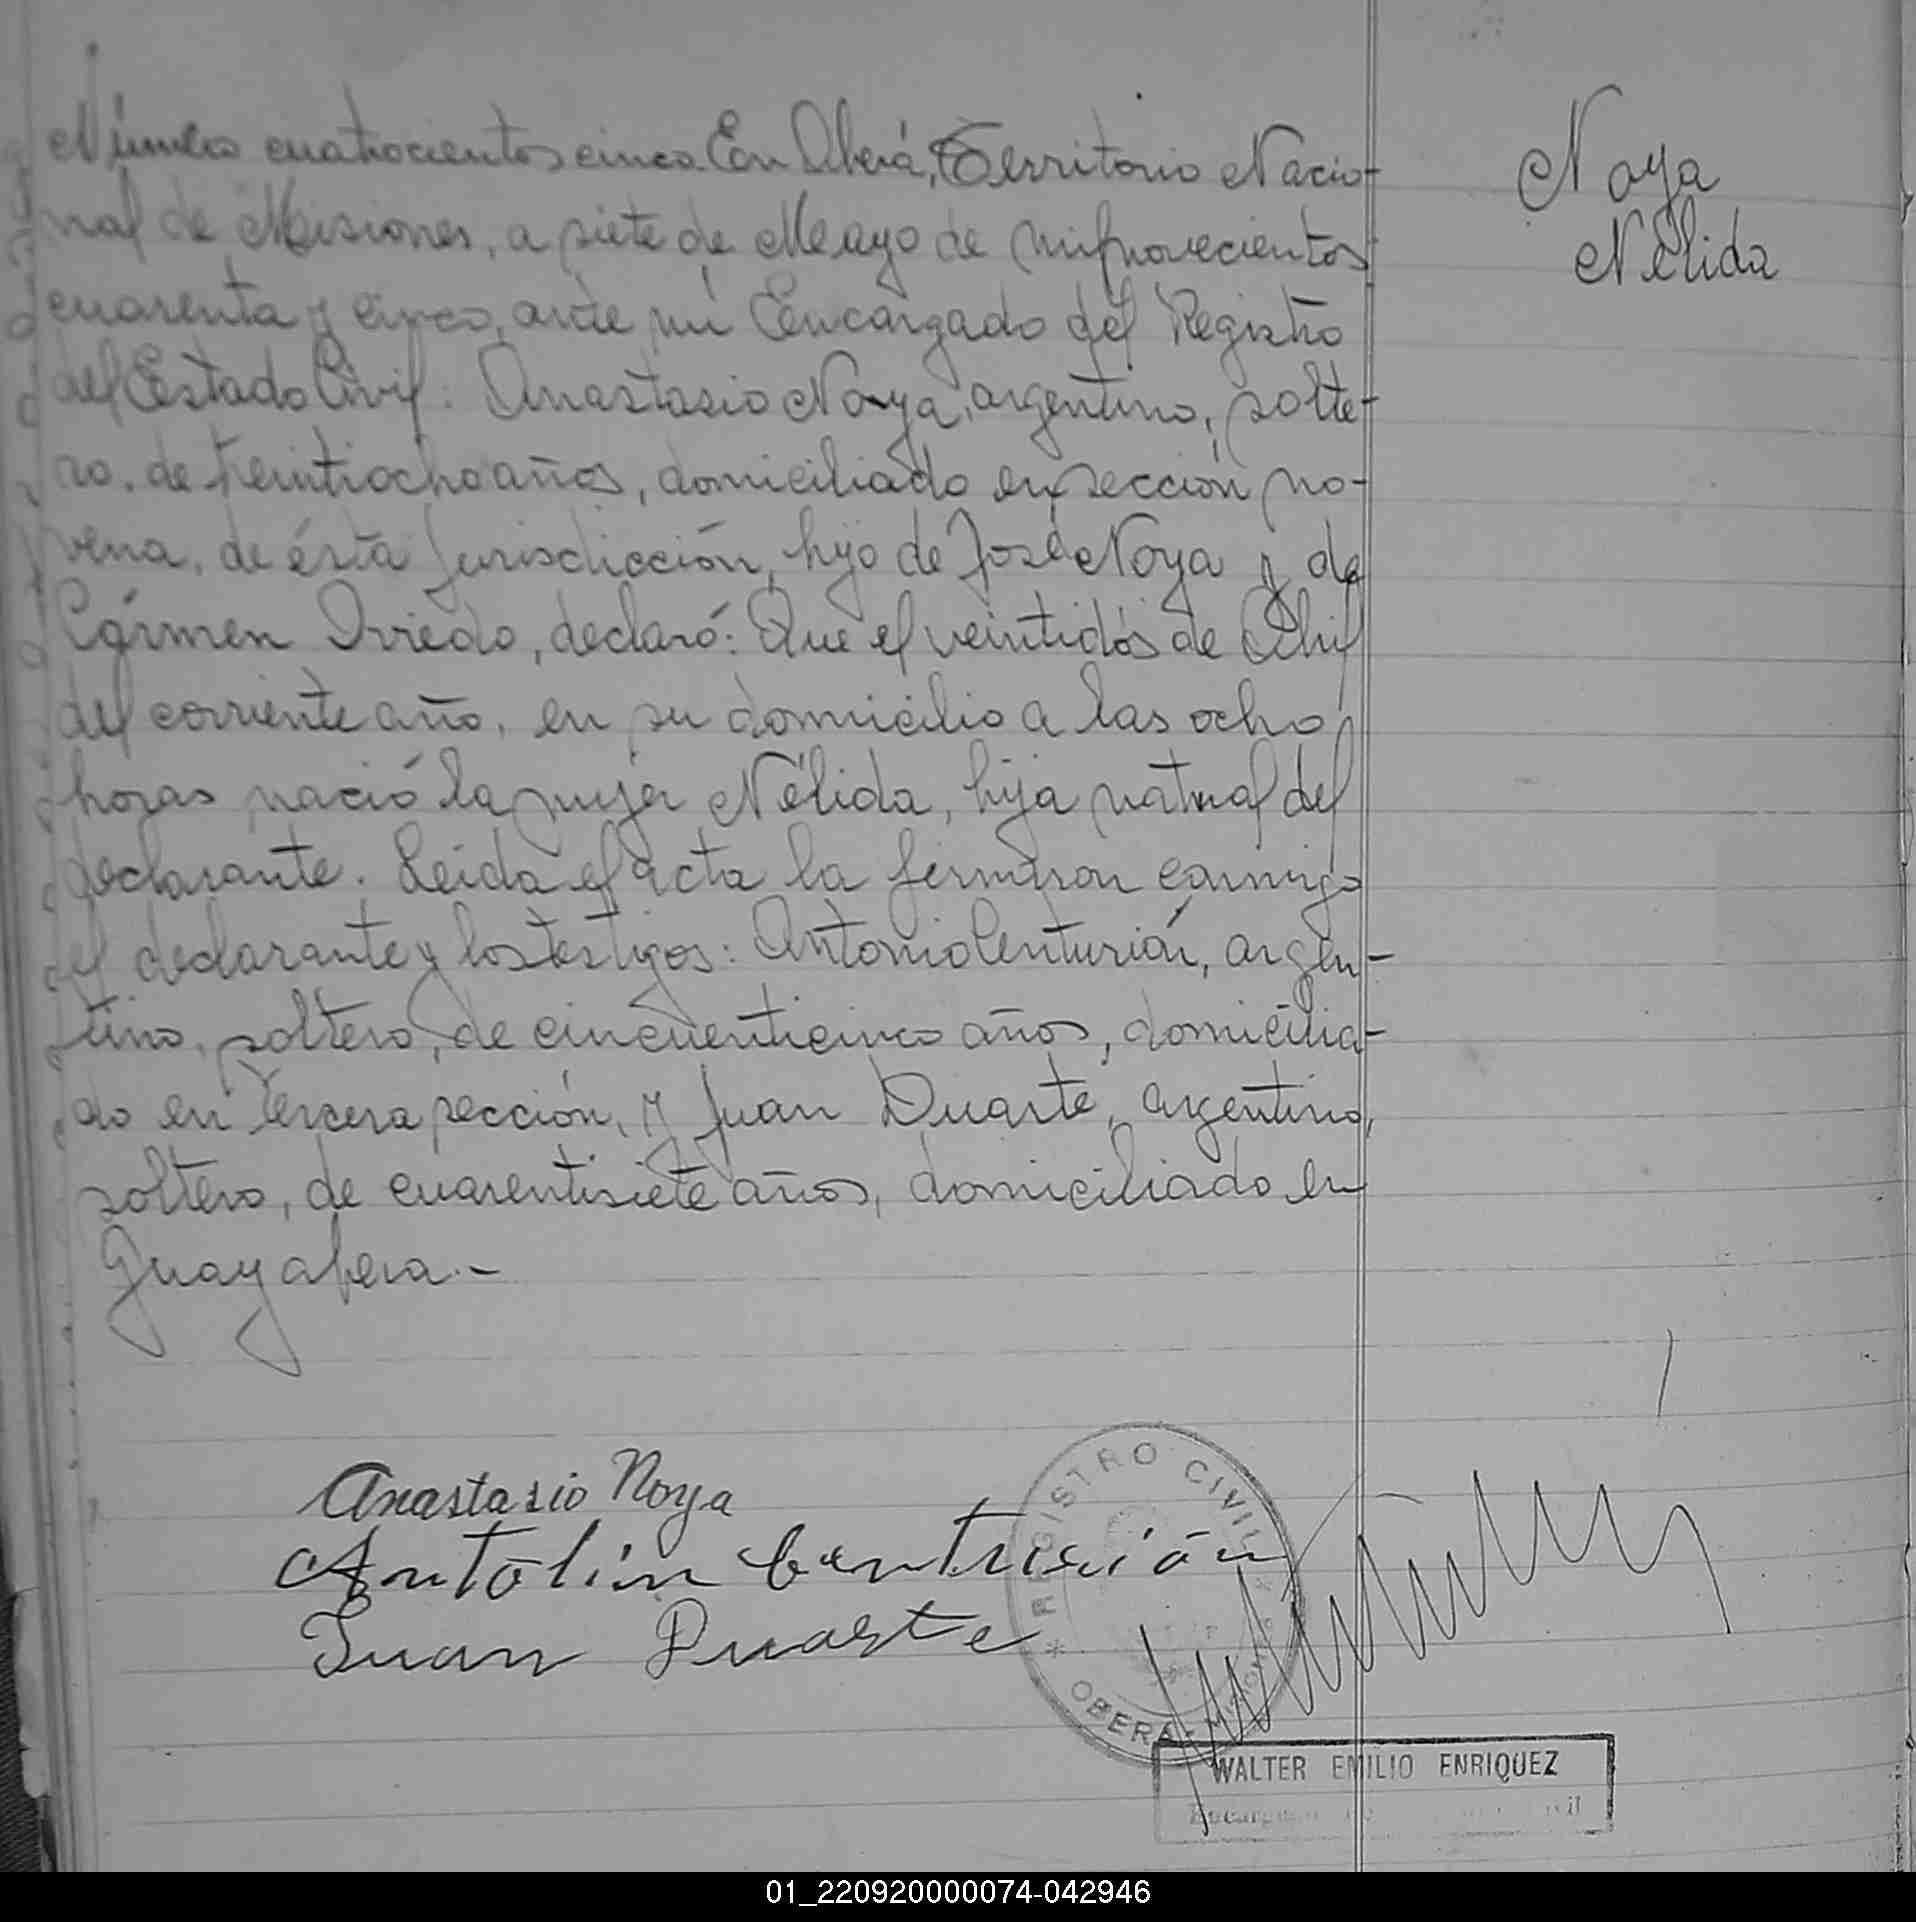 Número cuatrocientos cinco. En Oberá, Territorio Nacio-
nal de Misiones, a siete de Mayo de mil novecientos
cuarenta y cinco, ante mi Encargado del Registro
del Estado Civil: Anastasio Noya, argentino, solte-
ro, de treintiocho años, domiciliado en sección no-
vena, de ésta jurisdicción, hijo de José Noya y de
Cármen Oviedo, declaró: Que el veintidós de Abril
del corriente año, en su domicilio a las ocho
horas nació la mujer Nélida, hija natural del
declarante. Leida el acta la firmaron conmigo
el declarante y los testigos: Antonio Centurión, argen-
tino, soltero, de cincuenticinco años, domicilia-
do en tercera sección, y Juan Duarte, argentino,
soltero, de cuarentisiete años, domiciliado en
Guayabera.-
Noya
Nélida
Anastasio Noya
Antolin Centurión
Juan Duarte
* REGISTRO CIVIL *
OBERÁ - MISIONES
WALTER EMILIO ENRIQUEZ
01_220920000074-042946